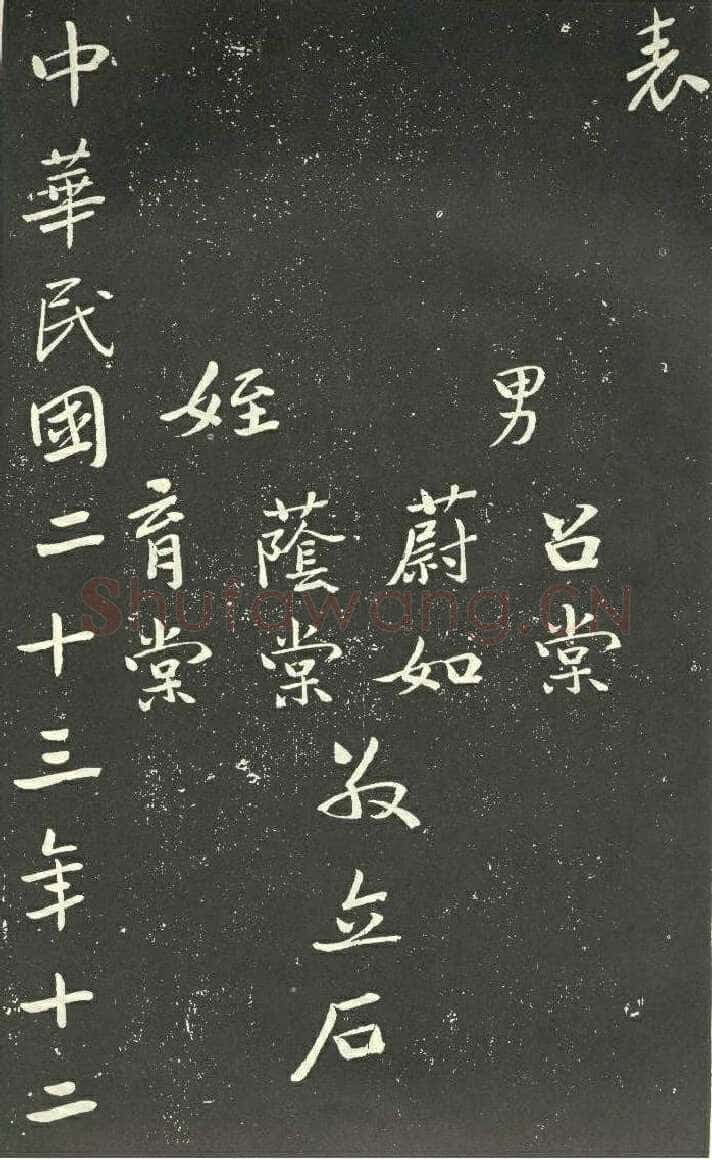 表
男
召棠
蔚如
姪
蔭棠
育棠
敬立石
中華民國二十三年十二
Shufawang.CN